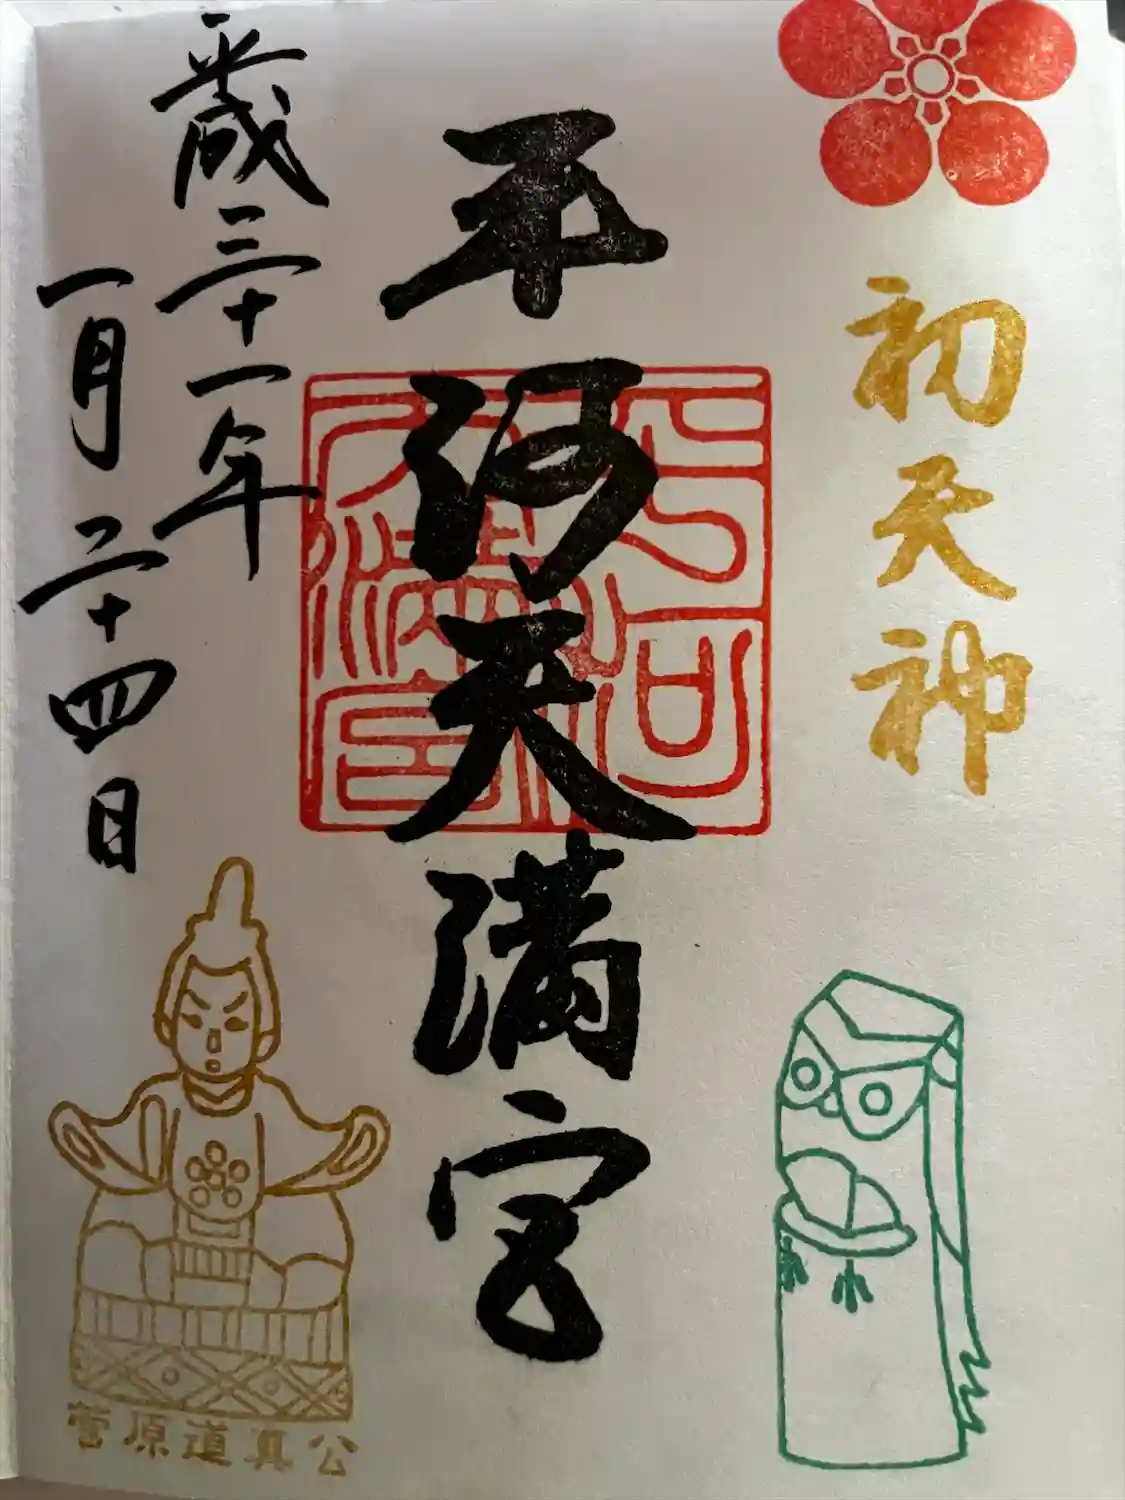 初天神
平河天満宮
平河天満宮
平成三十一年
一月二十四日
菅原道真公